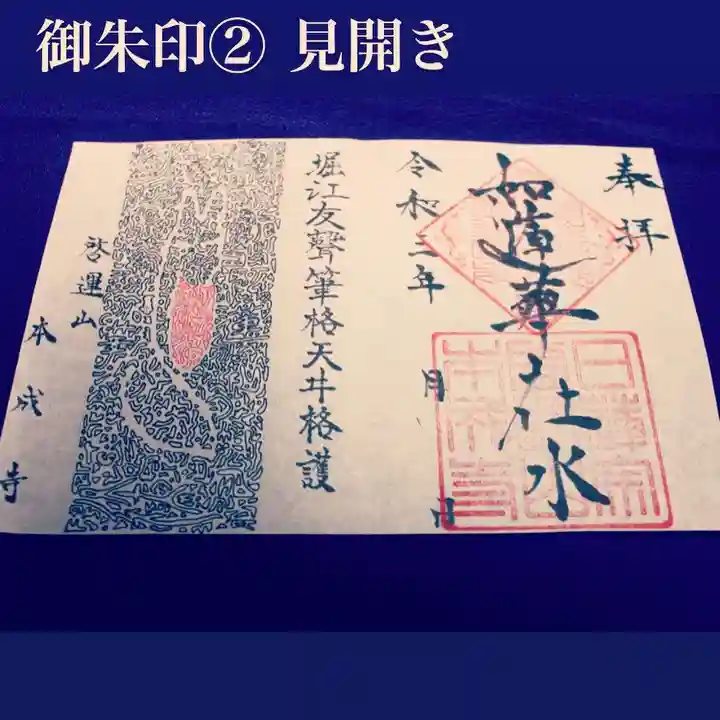 御朱印② 見開き
奉拝
如蓮華在水
令和三年 月 日
堀江友聲筆格天井格護
啓運山
本成寺